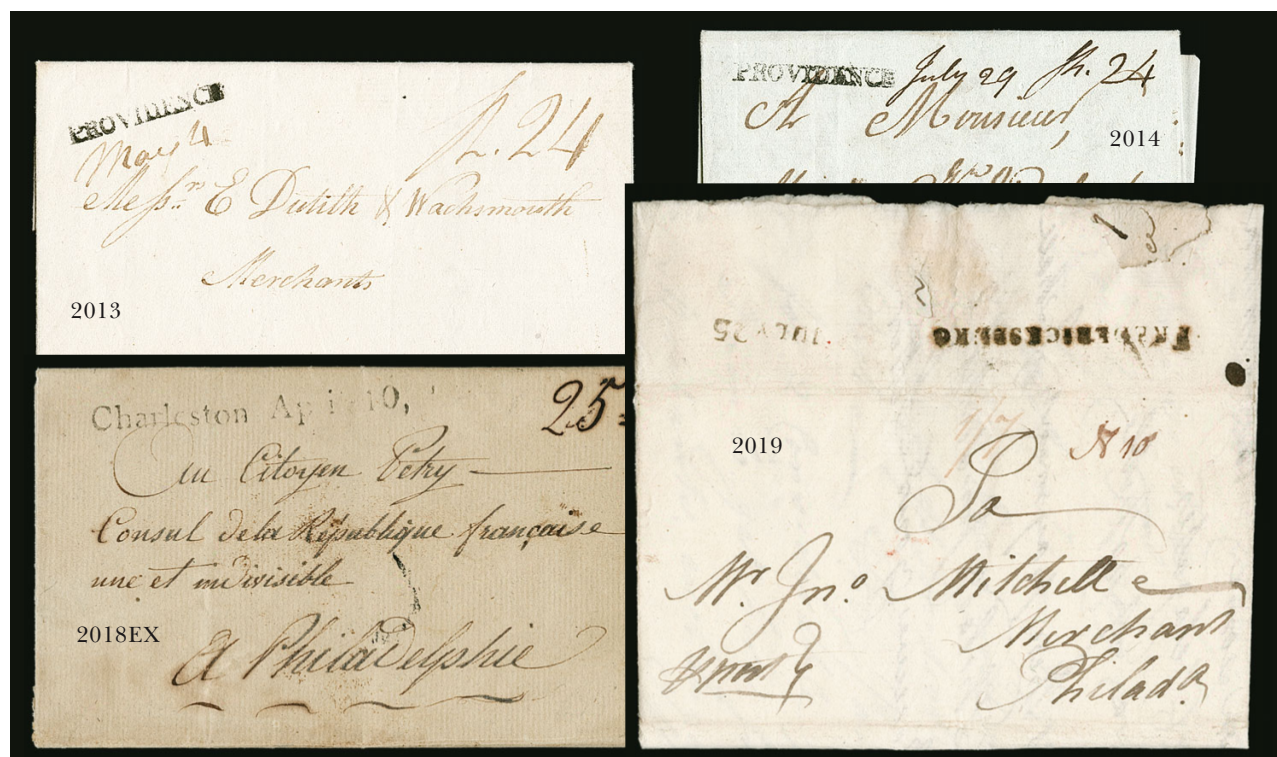 PROVIDENCE
May 4
Sh. 24
Messrs E Dutilh & Wachsmouth
Merchants
2013
PROVIDENCE July 29 Sh. 24
A Monsieur,
2014
Charleston Apri 10,
25
Au Citoyen Petry
Consul de la République française
une et indivisible
2018EX
A Philadelphie
3
FREDERICKSBERG
JULY 25
1/7
N 10
2019
To
Mr. Jno. Mitchell
Merchant
Philada